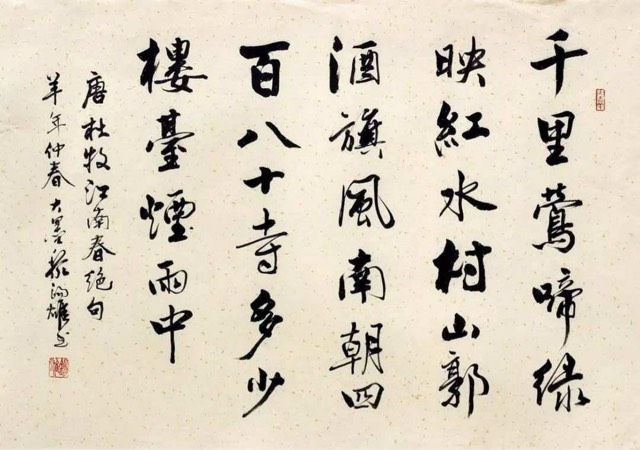 千里鶯啼绿
映紅水村山郭
酒旗風南朝四
百八十寺多少
樓臺煙雨中
唐杜牧江南春绝句
羊年仲春大墨雄书